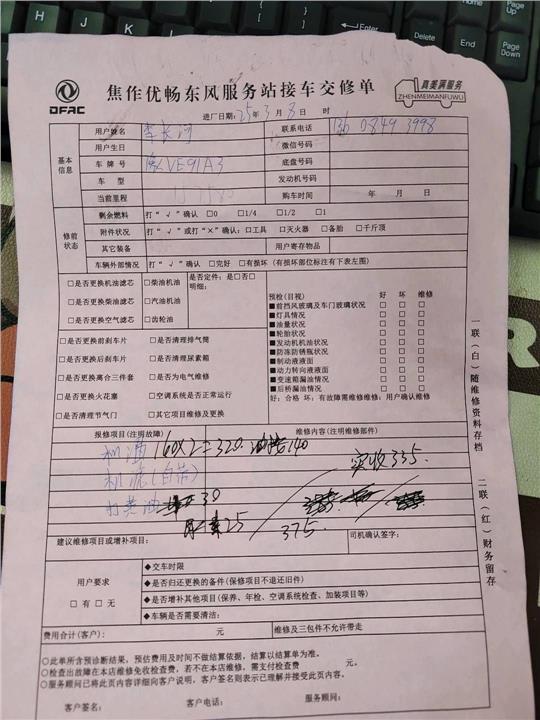 焦作优畅东风服务站接车交修单
DFAC
真美满服务
ZHENMEIMANFUWU
进厂日期：25年3月8日 时
基本信息
用户姓名 李长河 联系电话 136 0849 3998
用户生日 微信号码
车牌号 VE91A3 底盘号码
车型 发动机号码
当前里程 购车时间 年 月 日
修前状态
剩余燃料 打“√”确认 □0 □1/4 □1/2 □1
附件状况 打“√”或打“×”确认：□工具 □灭火器 □备胎 □千斤顶
其它装备 用户寄存物品
车辆外部情况 打“√”确认 □完好 □有损坏（有损坏部位标注有下表左图）
□是否更换机油滤芯 □柴油机油 是否定件：是□否□
明细：
□是否更换柴油滤芯 □汽油机油
□是否更换空气滤芯 □齿轮油
□是否更换前刹车片 □是否清理排气筒
□是否更换后刹车片 □是否清理尿素箱
□是否更换离合三件套 □是否为电气维修
□是否更换火花塞 □空调系统是否正常运行
□是否清理节气门 □其它项目维修及更换
预检（目视） 好 坏 维修
■前挡风玻璃及车门玻璃状况 □ □ □
■灯具情况 □ □ □
■油量状况 □ □ □
■轮胎状况 □ □ □
■发动机机油状况 □ □ □
■防冻防锈瓶状况 □ □ □
■制动液液面 □ □ □
■动力转向液液面 □ □ □
■变速箱漏油情况 □ □ □
■后桥漏油情况 □ □ □
好：合格 坏：有故障需维修维修：用户确认维修
报修项目（注明故障） 维修内容（注明维修部件）
机油 160×2=320 140
实收335.
机滤
打黄油 30
尿素25 375.
建议维修项目或增补项目： 司机确认签字：
用户要求
□有 □无
◆交车时限
◆是否归还更换的备件（保修项目不退还旧件）
◆是否增补其他项目（保养、年检、空调系统检查、加装项目等）
◆车辆是否需要清洁：
费用合计（客户）： 元 维修及三包件不允许带走
○此单所含预诊断结果，预估费用及时间不做结算依据，结算以结算单为准。
○检查出故障在本店维修免收检查费，若不在本店维修，需支付检查费 元。
○服务顾问已将此页内容详细向客户说明，客户签名则表示已理解并接受此页内容。
客户签名： 客户电话： 服务顾问：
一联（白）随维修资料存档
二联（红）财务留存